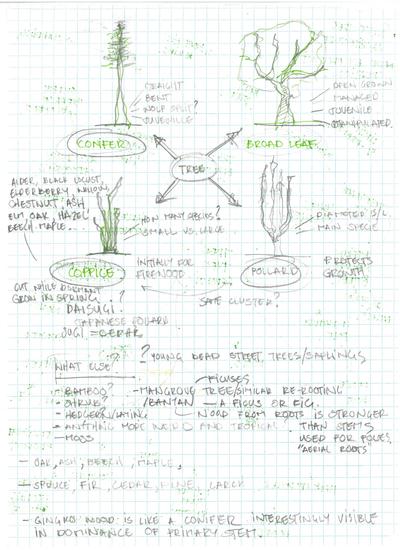 STRAIGHT
BENT
WOLF SPLIT?
JUVENILLE
CONIFER
OPEN GROWN
MANAGED
JUVENILE
MANIPULATED
BROAD LEAF
TREE
ALDER, BLACK LOCUST,
ELDERBERRY, WILLOW,
CHESTNUT, ASH
ELM, OAK, HAZEL
BEECH, MAPLE...
HOW MANY SPECIES?
SMALL VS. LARGE
COPPICE
INITIALLY FOR
FIREWOOD
DIAMETER S/L
MAIN SPECIE
POLLARD
PROTECTS
GROWTH
CUT WHILE DORMANT
GROW IN SPRING.
?
DAISUGI.
JAPANESE POLLARD
SUGI = CEDAR
SAFE CLUSTER?
? YOUNG DEAD STREET TREES/SAPLINGS
?
WHAT ELSE?
- BAMBOO?
- SHRUB?
- HEDGEROW/LAYING
- ANYTHING MORE WEIRD AND TROPICAL
- MOSS
FICUSES
- MANGROVE TREE/SIMILAR RE-ROOTING
/BANYAN - A FICUS OR FIG.
WOOD FROM ROOTS IS STRONGER
THAN STEMS
USED FOR POLES.
"AERIAL ROOTS"
- OAK, ASH, BEECH, MAPLE,
- SPUCE, FIR, CEDAR, PINE, LARCH
- GINGKO WOOD IS LIKE A CONIFER INTERESTINGLY VISIBLE
IN DOMINANCE OF PRIMARY STEM.